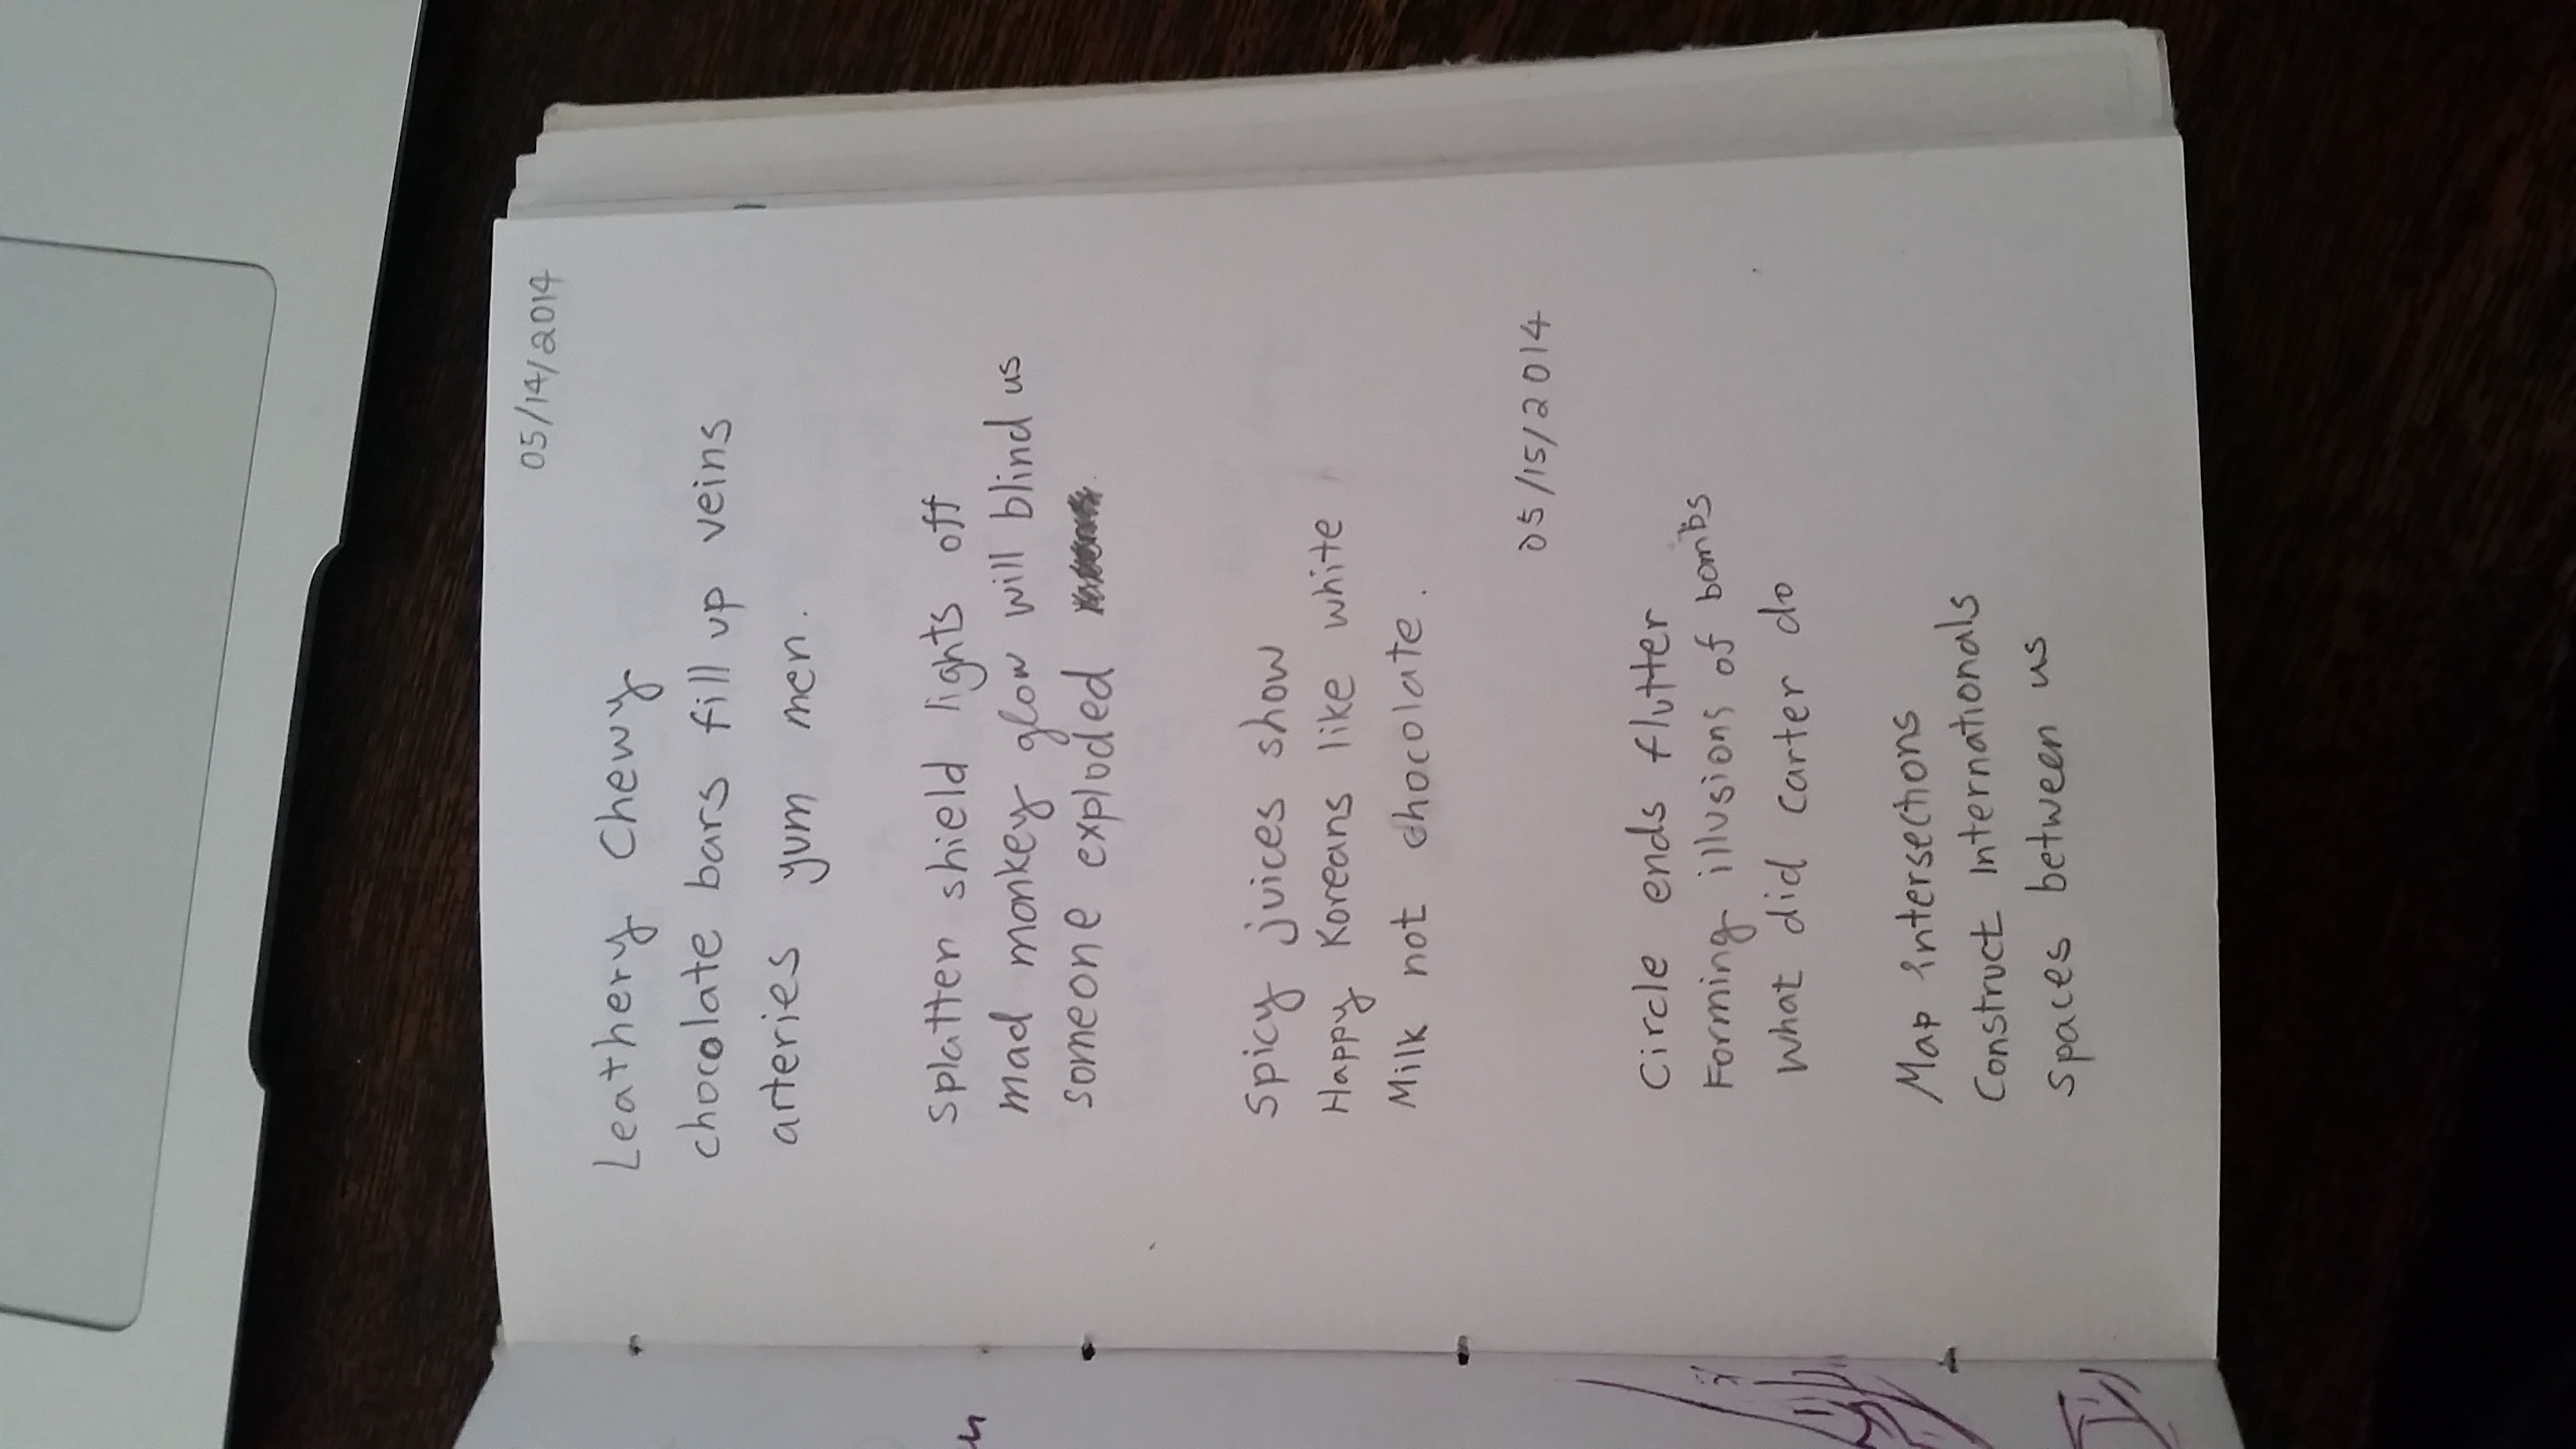 05/14/2014
Leathery Chewy
chocolate bars fill up veins
arteries yum men.
Splatter shield lights off
mad monkey glow will blind us
someone exploded
Spicy juices show
Happy Koreans like white
Milk not chocolate.
05/15/2014
Circle ends flutter
Forming illusions of bombs
What did carter do
Map intersections
Construct Internationals
spaces between us